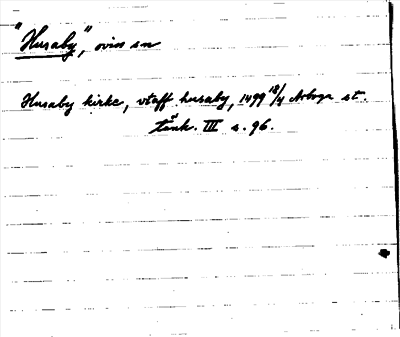 "Husaby", ovisn sn
Husaby kirke, vtaff husaby, 1499 18/4 Arboga st.
tänk. III s. 96.